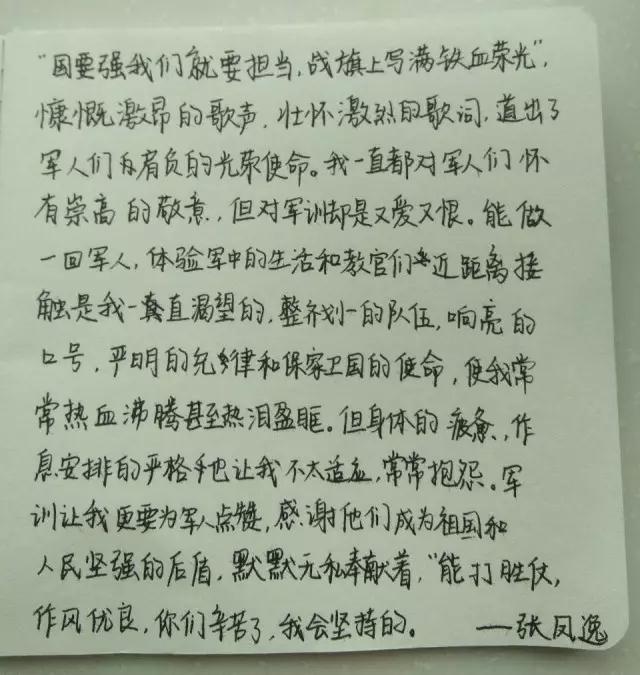 “国要强我们就要担当,战旗上写满铁血荣光”,
慷慨激昂的歌声,壮怀激烈的歌词,道出了
军人们肩负的光荣使命。我一直都对军人们怀
有崇高的敬意,但对军训却是又爱又恨。能做
一回军人,体验军中的生活和教官们近距离接
触是我一直渴望的,整齐划一的队伍,响亮的
口号,严明的纪律和保家卫国的使命,使我常
常热血沸腾甚至热泪盈眶。但身体的疲惫,作
息安排的严格也让我不太适应,常常抱怨。军
训让我更要为军人点赞,感谢他们成为祖国和
人民坚强的后盾,默默无私奉献着,“能打胜仗,
作风优良,你们辛苦了,我会坚持的。 ——张凤逸